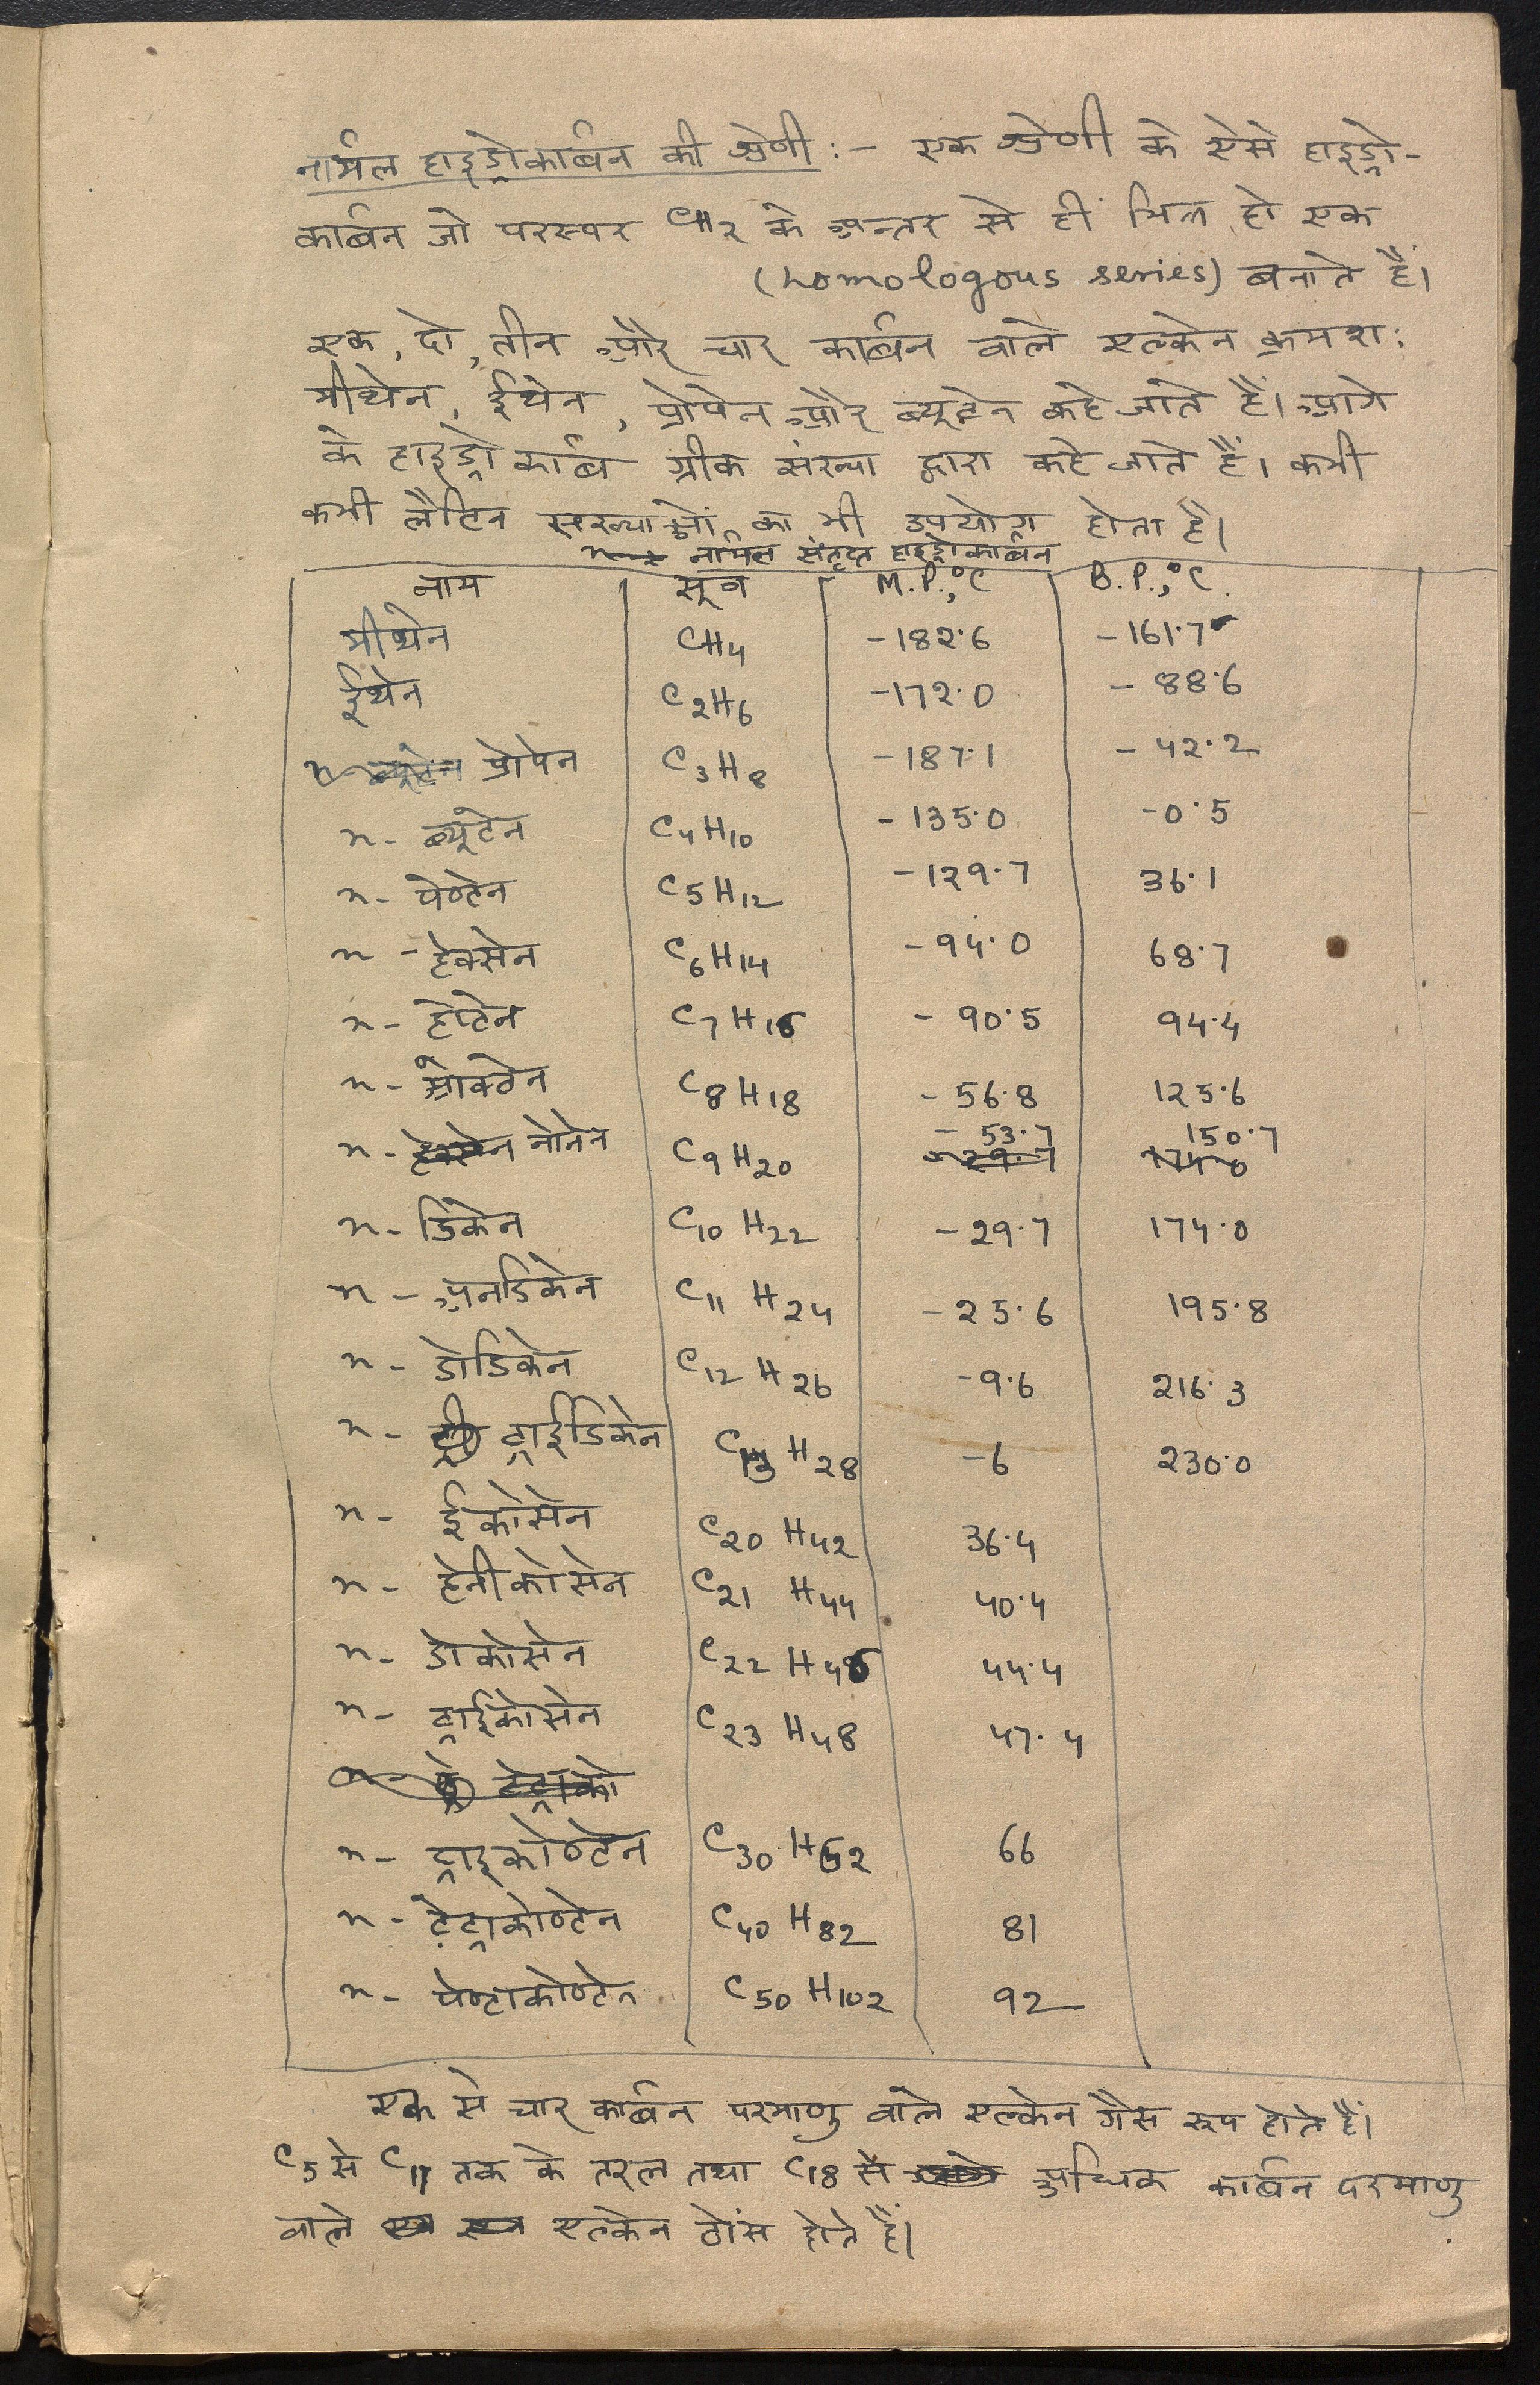 नार्मल हाइड्रोकार्बन की श्रेणी :- एक श्रेणी के ऐसे हाइड्रो-
कार्बन जो परस्पर CH2 के अन्तर से हीं भिन्न हो एक
(homologous series) बनाते हैं।
एक, दो, तीन और चार कार्बन वाले एल्केन क्रमशः
मीथेन, ईथेन, प्रोपेन और ब्यूटेन कहे जाते हैं। आगे
के हाइड्रोकार्ब ग्रीक संख्या द्वारा कहे जाते हैं। कभी
कभी लैटिन संख्याओं का भी उपयोग होता है।
नार्मल संतृप्त हाइड्रोकार्बन
नाम सूत्र M.P.,°C B.P.,°C.
मीथेन CH4 -182.6 -161.7
ईथेन C2H6 -172.0 -88.6
प्रोपेन C3H8 -187.1 -42.2
n- ब्यूटेन C4H10 -135.0 -0.5
n- पेण्टेन C5H12 -129.7 36.1
n- हेक्सेन C6H14 -94.0 68.7
n- हेप्टेन C7H16 -90.5 94.4
n- ऑक्टेन C8H18 -56.8 125.6
n- नोनेन C9H20 -53.7 150.7
n- डिकेन C10H22 -29.7 174.0
n- अनडिकेन C11H24 -25.6 195.8
n- डोडिकेन C12H26 -9.6 216.3
n- ट्राईडिकेन C13H28 -6 230.0
n- ईकोसेन C20H42 36.4
n- हेनीकोसेन C21H44 40.4
n- डोकोसेन C22H46 44.4
n- ट्राईकोसेन C23H48 47.4
n- ट्राइकोण्टेन C30H62 66
n- टेट्राकोण्टेन C40H82 81
n- पेण्टाकोण्टेन C50H102 92
एक से चार कार्बन परमाणु वाले एल्केन गैस रूप होते हैं।
C5 से C17 तक के तरल तथा C18 से अधिक कार्बन परमाणु
वाले एल्केन ठोंस होते हैं।